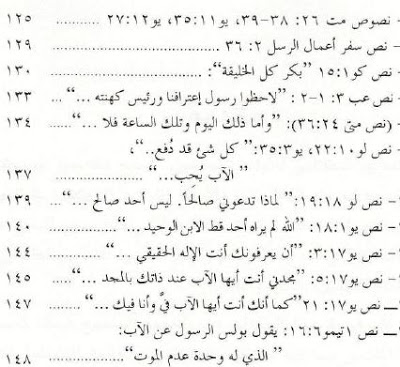 - نصوص مت ٢٦: ٣٨-٣٩، يو١١:٣٥، يو٢٧:١٢ ........... ١٢٥
- نص سفر أعمال الرسل ٢: ٣٦ ........... ١٢٩
- نص كو١٥:١ "بكر كل الخليقة": ........... ١٣٠
- نص عب ٣: ١-٢ : "لاحظوا رسول إعترافنا ورئيس كهنته ..." ..... ١٣٣
- (نص متى ٣٦:٢٤): "وأما ذلك اليوم وتلك الساعة فلا ..." ...... ١٣٤
- نص لو ٢٢:١٠، يو٣٥:٣: " كل شئ قد دُفع.."،
" الآب يُحِب..." ........... ١٣٧
- نص لو ١٩:١٨: " لماذا تدعوني صالحاً. ليس أحد صالح ..." .. ١٣٩
- نص يو١٨:١: " الله لم يراه أحد قط الابن الوحيد ..." ........... ١٤٠
- نص يو٣:١٧: "أن يعرفونك أنت الإله الحقيقي ..." ........... ١٤٤
- نص يو٥:١٧: "مجدني أنت أيها الآب عند ذاتك بالمجد ..." ..... ١٤٥
ـ نص يو١٧: ٢١ "كما أنك أنت أيها الآب فيَّ وأنا فيك ..." ...... ١٤٧
ـ نص ١تيمو١٦:٦: يقول بولس الرسول عن الآب:
" الذي له وحدة عدم الموت" ........... ١٤٨